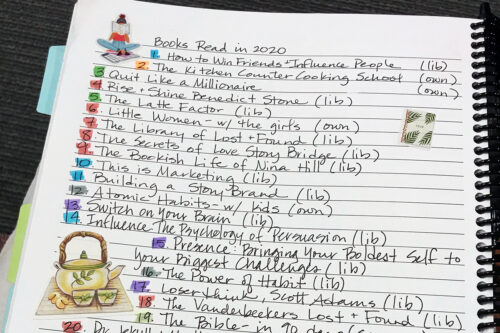 Books Read in 2020
1. How to Win Friends + Influence People (lib)
2. The Kitchen Counter Cooking School (own)
3 Quit Like a Millionaire (own)
4 Rise + Shine Benedict Stone (lib)
5. The Latte Factor (lib)
6. Little Women - w/ the girls (own)
7. The Library of Lost + Found (lib)
8. The Secrets of Love Story Bridge (lib)
9. The Bookish Life of Nina Hill (lib)
10. This is Marketing (lib)
11. Building a Story Brand (lib)
12. Atomic Habits - w/ kids (own)
13. Switch on Your Brain (lib)
14. Influence: The Psychology of Persuasion (lib)
15. Presence: Bringing Your Boldest Self to
Your Biggest Challenges (lib)
16. The Power of Habit (lib)
17. Loserthink, Scott Adams (lib)
18. The Vanderbeekers Lost + Found (lib)
19. The Bible - in 90 days
20. Dr. Jekyll +